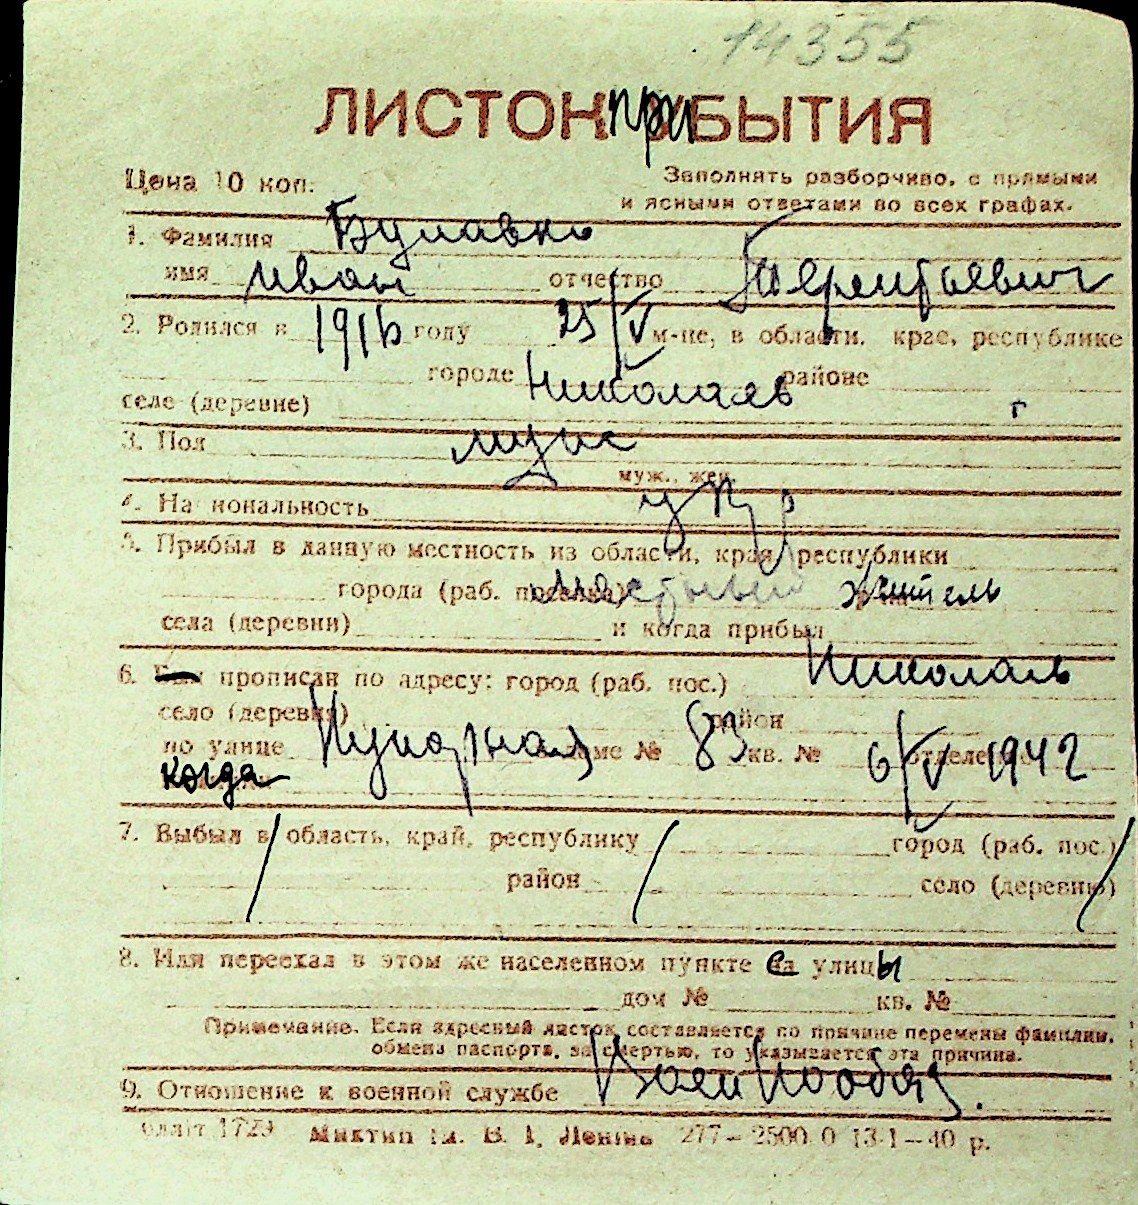 14355
ЛИСТОК приБЫТИЯ
Цена 10 коп.
Заполнять разборчиво, с прямыми
и ясными ответами во всех графах.
1. Фамилия Булавко
имя Иван отчество Терентьевич
2. Родился в 1916 году 25/V м-це, в области, крае, республике
городе Николаев районе
селе (деревне) г
3. Пол муж
муж., жен.
4. На иональность укр
5. Прибыл в данную местность из области, края, республики
города (раб. поселка) местный житель
села (деревни) и когда прибыл
6. прописан по адресу: город (раб. пос.) Николаев
село (деревня) район
по улице доме № 83 кв. № 6/V отделен 1942
когда
7. Выбыл в область, край, республику город (раб. пос.)
район село (деревню)
8. Или переехал в этом же населенном пункте с улицы
дом № кв. №
Примечание. Если адресный листок составляется по причине перемены фамилии,
обмена паспорта, за смертью, то указывается эта причина.
9. Отношение к военной службе Военнообяз.
1723 Миктип ім. В. І. Леніна 277—2500.0 13-1—40 р.